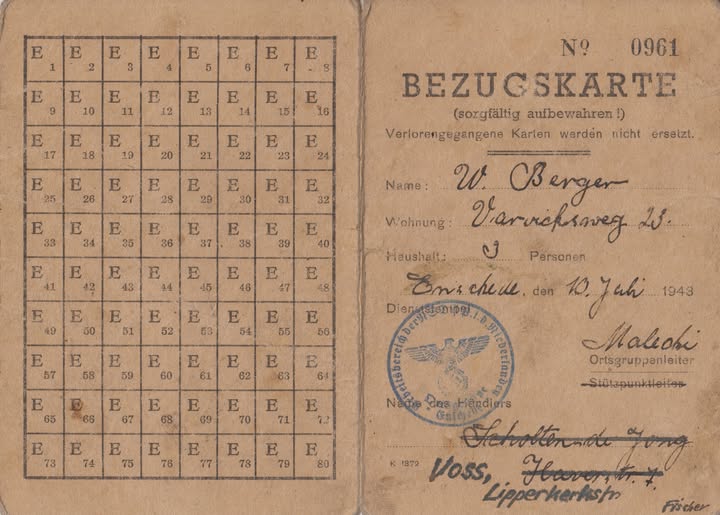 E 1 E 2 E 3 E 4 E 5 E 6 E 7 E 8
E 9 E 10 E 11 E 12 E 13 E 14 E 15 E 16
E 17 E 18 E 19 E 20 E 21 E 22 E 23 E 24
E 25 E 26 E 27 E 28 E 29 E 30 E 31 E 32
E 33 E 34 E 35 E 36 E 37 E 38 E 39 E 40
E 41 E 42 E 43 E 44 E 45 E 46 E 47 E 48
E 49 E 50 E 51 E 52 E 53 E 54 E 55 E 56
E 57 E 58 E 59 E 60 E 61 E 62 E 63 E 64
E 65 E 66 E 67 E 68 E 69 E 70 E 71 E 72
E 73 E 74 E 75 E 76 E 77 E 78 E 79 E 80
Nº 0961
BEZUGSKARTE
(sorgfältig aufbewahren!)
Verlorengegangene Karten werden nicht ersetzt.
Name: W. Berger
Wohnung: Varvicksweg 23.
Haushalt: 3 Personen
Enschede, den 10 Juli 1943
Dienststempel
Arbeitsbereich der N.S.D.A.P. i. d. Niederlanden
Enschede
Malechi
Ortsgruppenleiter
Stützpunktleiter
Name des Händlers
Scholten-de Jong
K 1372
Voss,
Haver str. 7.
Lipperkerkstr
Fischer